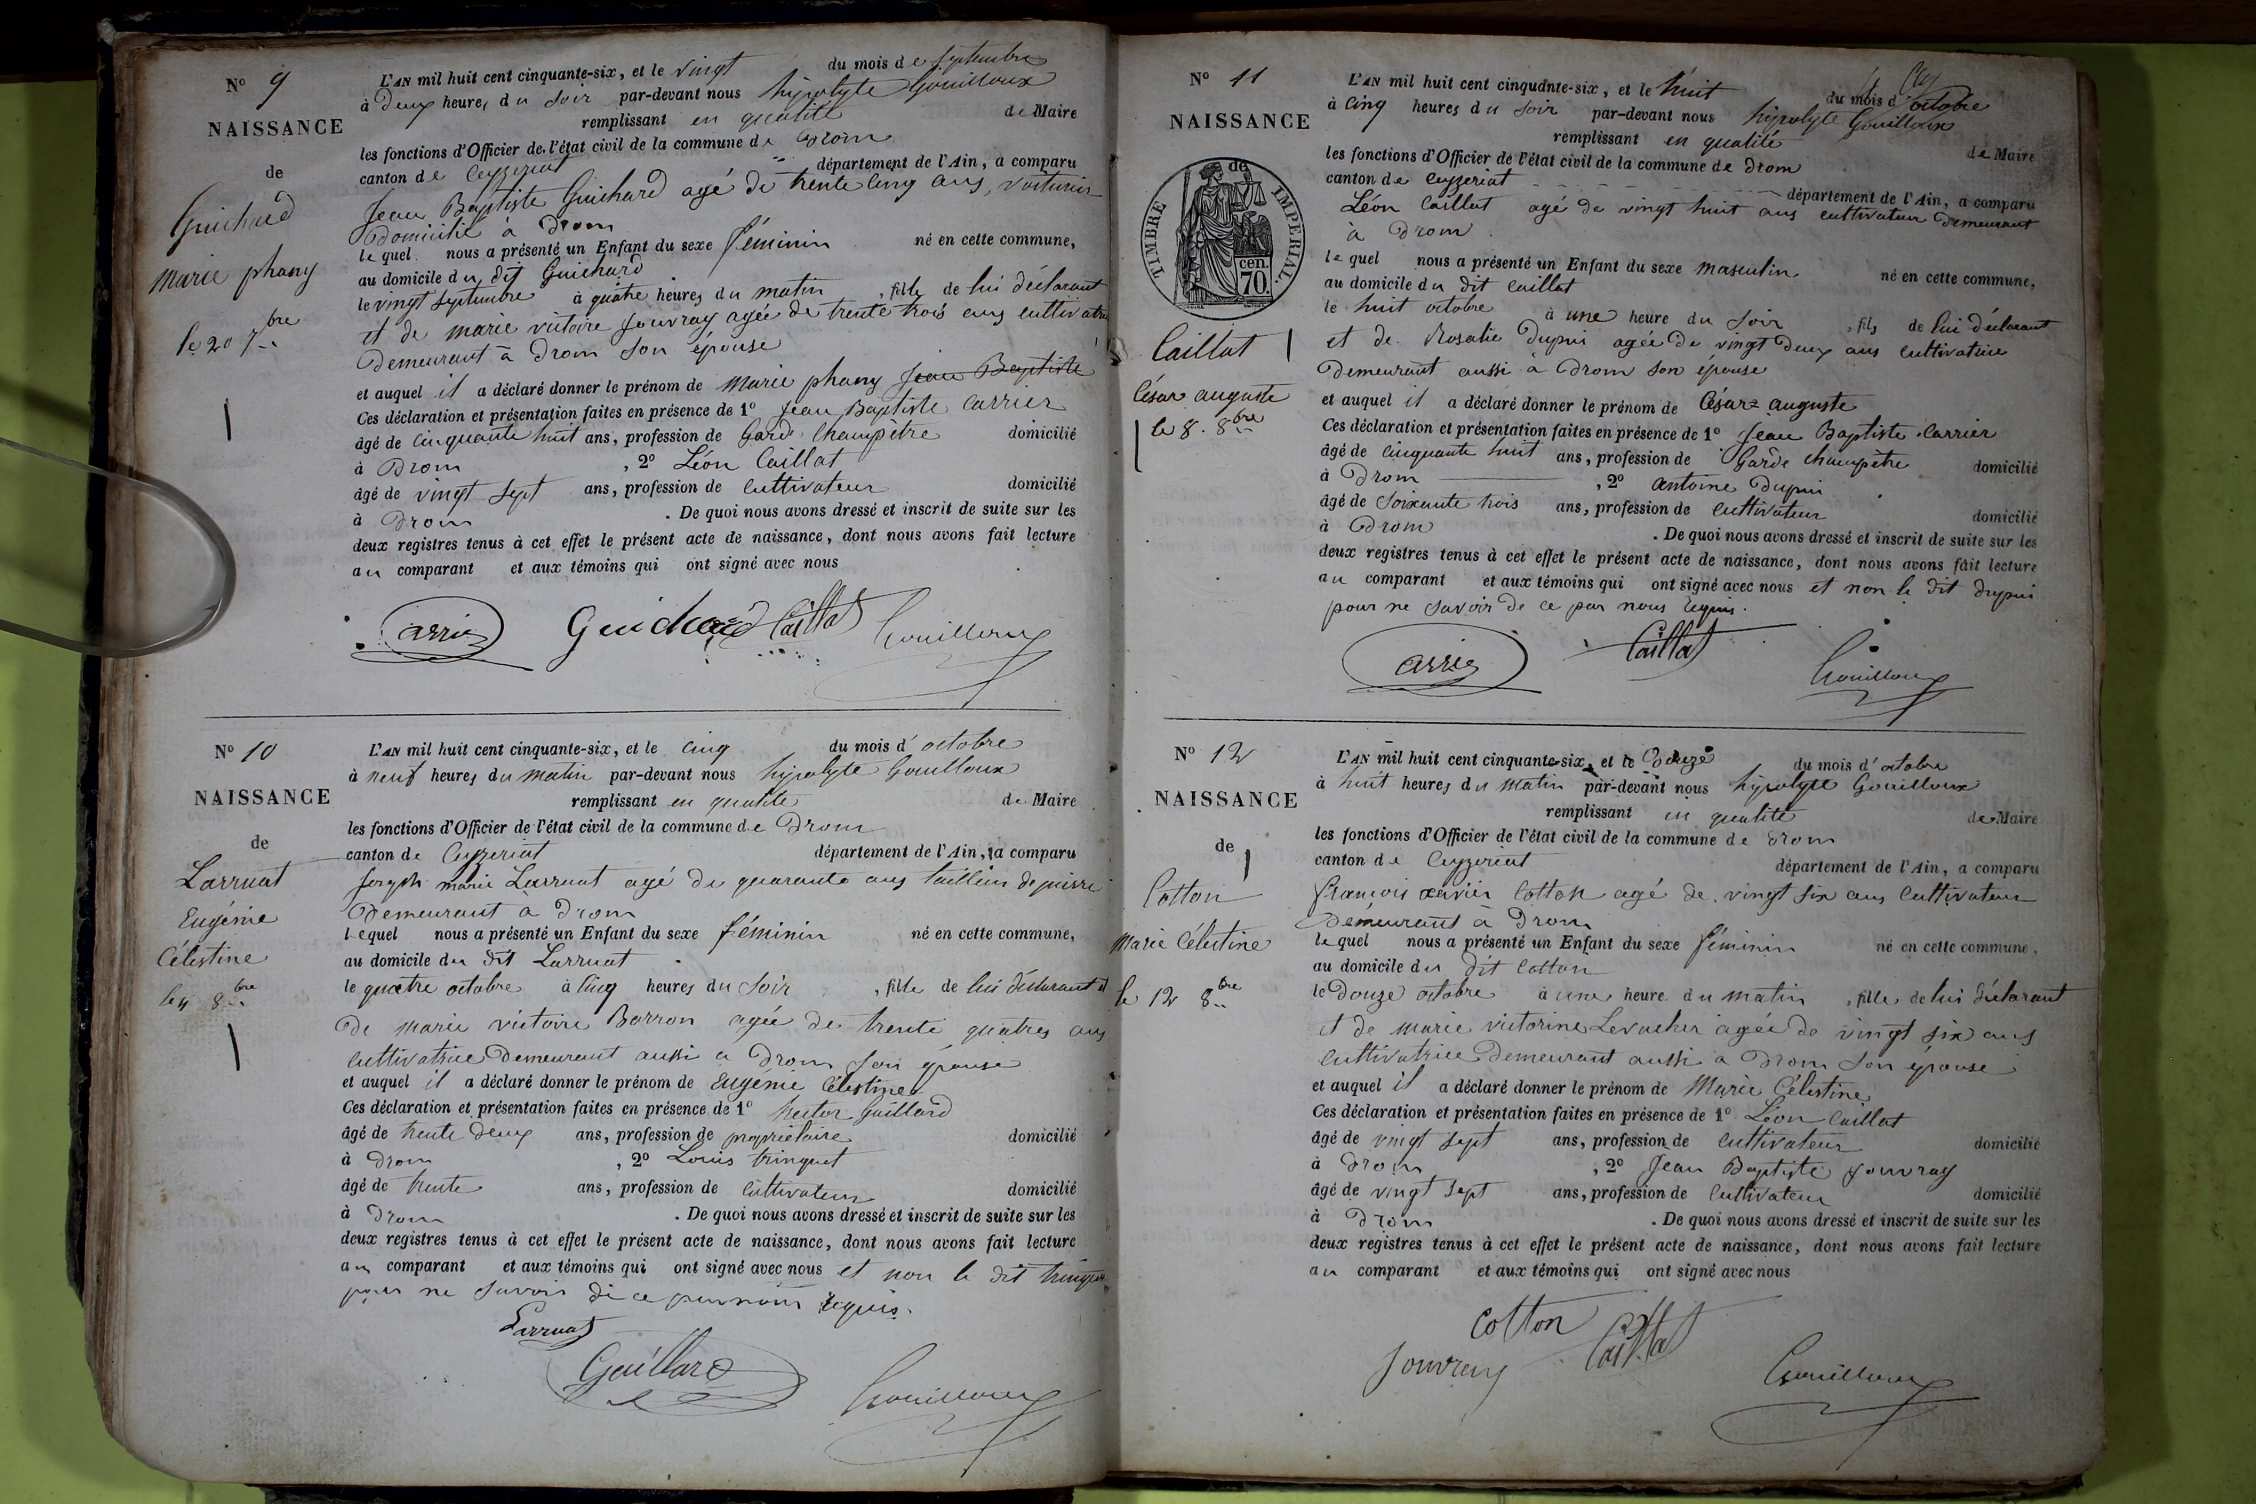 N° 9
NAISSANCE
de
Guichard
Marie phany
le 20 7bre
L'AN mil huit cent cinquante-six, et le vingt du mois de septembre
à Deux heures du soir par-devant nous hipolyte Gouilloux
remplissant en qualité de Maire
les fonctions d'Officier de l'état civil de la commune de Drom
canton de Ceyzeriat département de l'Ain, a comparu
Jean Baptiste Guichard agé de trente cinq ans, voiturier
Domicilié à Drom
lequel nous a présenté un Enfant du sexe féminin né en cette commune,
au domicile du dit Guichard
le vingt septembre à quatre heures du matin, fille de lui déclarant
et de marie victoire Jouvray agée de trente trois ans cultivatrice
Demeurant à Drom son épouse
et auquel il a déclaré donner le prénom de Marie phany Jean Baptiste
Ces déclaration et présentation faites en présence de 1° Jean Baptiste Carrier
âgé de cinquante huit ans, profession de Garde Champêtre domicilié
à Drom, 2° Léon Caillat
âgé de vingt sept ans, profession de cultivateur domicilié
à Drom. De quoi nous avons dressé et inscrit de suite sur les
deux registres tenus à cet effet le présent acte de naissance, dont nous avons fait lecture
au comparant et aux témoins qui ont signé avec nous
Carrier Guichard Caillat Gouilloux
N° 10
NAISSANCE
de
Larruat
Eugénie
Célestine
le 4 8bre
L'AN mil huit cent cinquante-six, et le cinq du mois d'octobre
à neuf heures du matin par-devant nous hipolyte Gouilloux
remplissant en qualité de Maire
les fonctions d'Officier de l'état civil de la commune de Drom
canton de Ceyzeriat département de l'Ain, a comparu
Joseph marie Larruat agé de quarante ans tailleur de pierre
Demeurant a Drom
lequel nous a présenté un Enfant du sexe féminin né en cette commune,
au domicile du dit Larruat
le quatre octobre à cinq heures du soir, fille de lui déclarant et
De marie victoire Borron agée de trente quatres ans
cultivatrice Demeurant aussi a Drom son épouse
et auquel il a déclaré donner le prénom de Eugénie Célestine
Ces déclaration et présentation faites en présence de 1° hector Gaillard
âgé de trente deux ans, profession de propriétaire domicilié
à Drom, 2° Louis tringuet
âgé de trente ans, profession de cultivateur domicilié
à Drom. De quoi nous avons dressé et inscrit de suite sur les
deux registres tenus à cet effet le présent acte de naissance, dont nous avons fait lecture
au comparant et aux témoins qui ont signé avec nous et non le dit tringuet
pour ne savoir de ce par nous requis.
Larruat
Gaillard Gouilloux
N° 11
NAISSANCE
de
TIMBRE IMPERIAL
70 cen.
Caillat
César auguste
le 8. 8bre
L'AN mil huit cent cinquante-six, et le huit du mois d'octobre
à cinq heures du soir par-devant nous hipolyte Gouilloux
remplissant en qualité de Maire
les fonctions d'Officier de l'état civil de la commune de Drom
canton de Ceyzeriat département de l'Ain, a comparu
Léon Caillat agé de vingt huit ans cultivateur Demeurant
à Drom
lequel nous a présenté un Enfant du sexe masculin né en cette commune,
au domicile du dit Caillat
le huit octobre à une heure du soir, fils de lui déclarant
et de Rosalie Dupui agée De vingt Deux ans cultivatrice
Demeurant aussi à Drom son épouse
et auquel il a déclaré donner le prénom de César auguste
Ces déclaration et présentation faites en présence de 1° Jean Baptiste Carrier
âgé de cinquante huit ans, profession de Garde champêtre domicilié
à Drom, 2° antoine Dupui
âgé de soixante trois ans, profession de cultivateur domicilié
à Drom. De quoi nous avons dressé et inscrit de suite sur les
deux registres tenus à cet effet le présent acte de naissance, dont nous avons fait lecture
au comparant et aux témoins qui ont signé avec nous et non le dit dupui
pour ne savoir de ce par nous requis.
Carrier Caillat Gouilloux
N° 12
NAISSANCE
de
Cotton
Marie Célestine
le 12 8bre
L'AN mil huit cent cinquante-six, et le Douze du mois d'octobre
à huit heures du matin par-devant nous hipolyte Gouilloux
remplissant en qualité de Maire
les fonctions d'Officier de l'état civil de la commune de Drom
canton de Ceyzeriat département de l'Ain, a comparu
françois xavier Cotton agé de vingt six ans cultivateur
Demeurant à Drom
lequel nous a présenté un Enfant du sexe féminin né en cette commune,
au domicile du dit Cotton
le Douze octobre à une heure du matin, fille de lui déclarant
et de marie victorine Levacher agée de vingt six ans
cultivatrice Demeurant aussi a Drom son épouse
et auquel il a déclaré donner le prénom de Marie Célestine
Ces déclaration et présentation faites en présence de 1° Léon Caillat
âgé de vingt sept ans, profession de cultivateur domicilié
à Drom, 2° Jean Baptiste Jouvray
âgé de vingt sept ans, profession de cultivateur domicilié
à Drom. De quoi nous avons dressé et inscrit de suite sur les
deux registres tenus à cet effet le présent acte de naissance, dont nous avons fait lecture
au comparant et aux témoins qui ont signé avec nous
Cotton Caillat
Jouvray Gouilloux